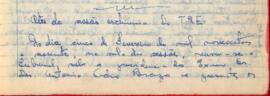 Ata da sessão ordinária do T.R.E.
Ao dia cinco de Fevereiro de mil novecentos
e sessenta, na sala das sessões, reuniu-se o
Tribunal, sob a presidência do Exmo. Sr.
Des. Antonio Braga e presente os